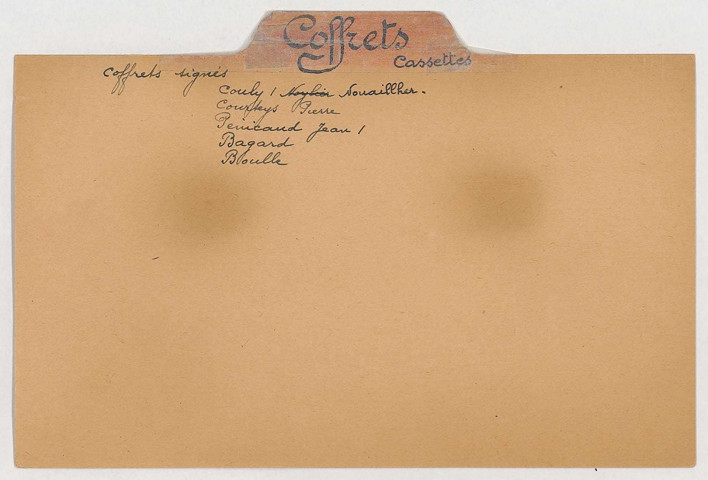 Coffrets
Cassettes
Coffrets signés
Couly I Noylier Nouaillher.
Courteys Pierre
Penicaud Jean I
Bagard
Boulle